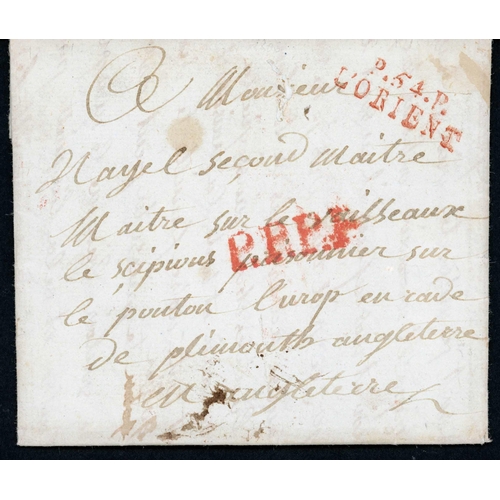 A Monsieur
P.54.P.
L'ORIENT
Nayel second Maitre
Maitre sur le vaisseaux
P.P.P.P.
le scipions prisonnier sur
le ponton Europ en rade
de plémouth angleterre
en angleterre